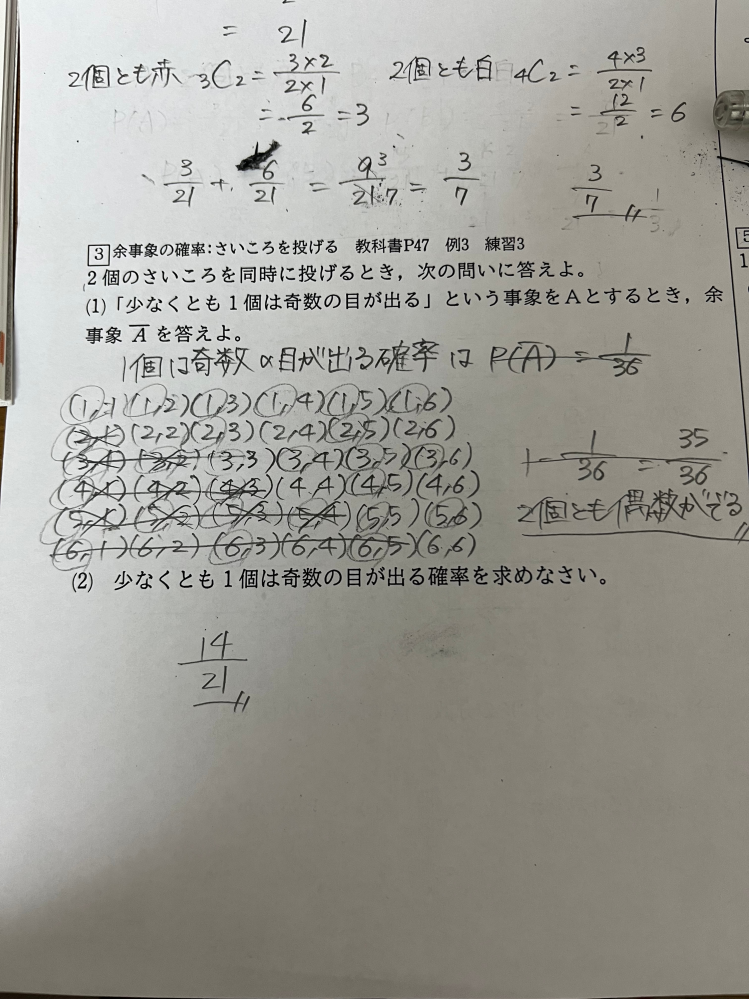 = 21
2個とも赤 ₃C₂ = 3×2/2×1 2個とも白 ₄C₂ = 4×3/2×1
= 6/2 = 3 = 12/2 = 6
3/21 + 6/21 = 9/21 = 3/7 3/7
3 余事象の確率:さいころを投げる 教科書P47 例3 練習3
2個のさいころを同時に投げるとき,次の問いに答えよ。
(1)「少なくとも1個は奇数の目が出る」という事象をAとするとき,余
事象 A̅ を答えよ。
1個は奇数の目が出る確率は P(A̅) = 1/36
(1,1)(1,2)(1,3)(1,4)(1,5)(1,6)
(2,1)(2,2)(2,3)(2,4)(2,5)(2,6)
(3,1)(3,2)(3,3)(3,4)(3,5)(3,6)
(4,1)(4,2)(4,3)(4,4)(4,5)(4,6)
(5,1)(5,2)(5,3)(5,4)(5,5)(5,6)
(6,1)(6,2)(6,3)(6,4)(6,5)(6,6)
1 - 1/36 = 35/36
2個とも偶数がでる
(2) 少なくとも1個は奇数の目が出る確率を求めなさい。
14/21